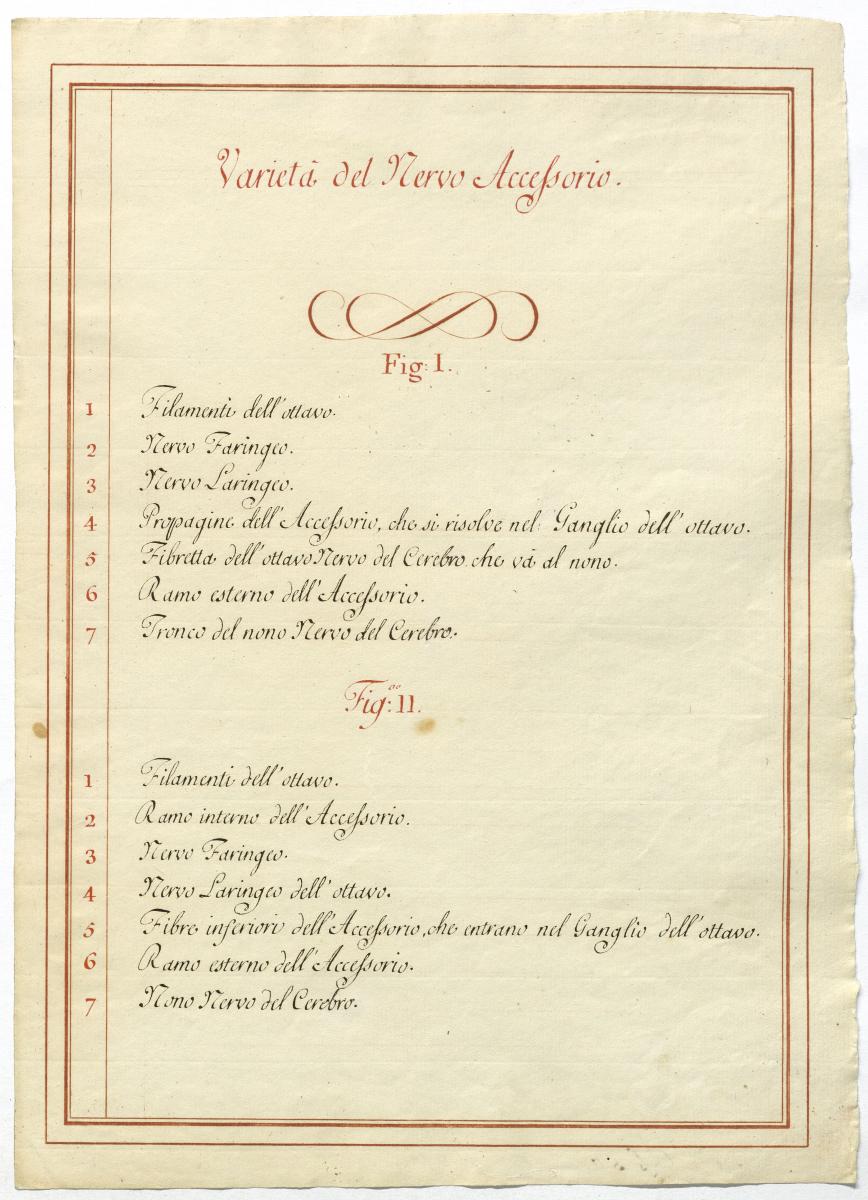 Varietà del Nervo Accessorio.
Fig: I.
1 Filamenti dell'ottavo.
2 Nervo Faringeo.
3 Nervo Laringeo.
4 Propagine dell'Accessorio, che si risolve nel Ganglio dell'ottavo.
5 Fibretta dell'ottavo Nervo del Cerebro che và al nono.
6 Ramo esterno dell'Accessorio.
7 Tronco del nono Nervo del Cerebro.
Fig: II.
1 Filamenti dell'ottavo.
2 Ramo interno dell'Accessorio.
3 Nervo Faringeo.
4 Nervo Laringeo dell'ottavo.
5 Fibre inferiori dell'Accessorio, che entrano nel Ganglio dell'ottavo.
6 Ramo esterno dell'Accessorio.
7 Nono Nervo del Cerebro.